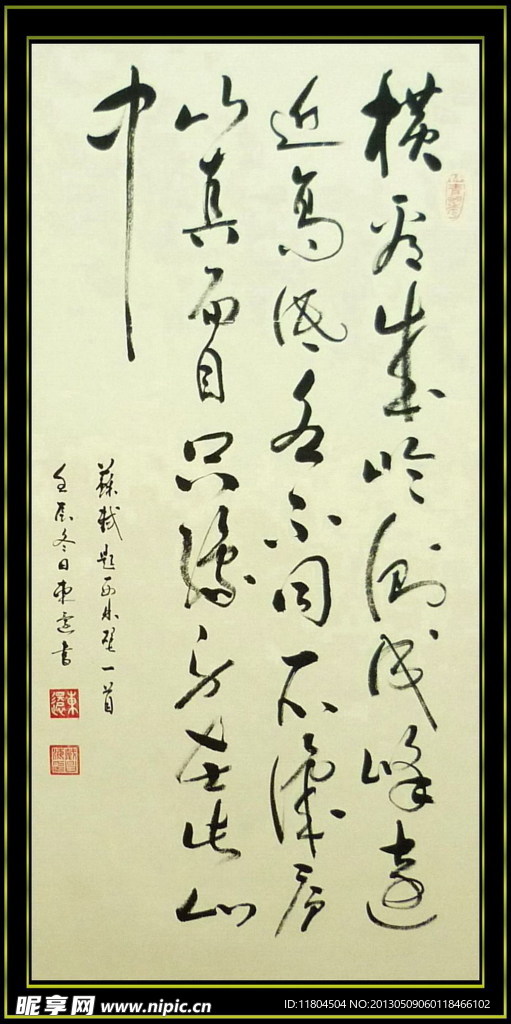 横看成岭侧成峰遠
近高低各不同不識廬
山真面目只緣身在此山
中
蘇軾題西林壁一首
壬辰冬日東還書
東還
昵享网 www.nipic.cn
ID:11804504 NO:20130509060118466102